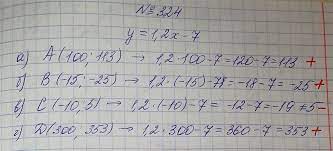 №324
y = 1,2x - 7
а) A (100; 113) → 1,2 · 100 - 7 = 120 - 7 = 113 +
б) B (-15; -25) → 1,2 · (-15) - 7 = -18 - 7 = -25 +
в) C (-10; 5) → 1,2 · (-10) - 7 = -12 - 7 = -19 ≠ 5 -
г) D (300; 353) → 1,2 · 300 - 7 = 360 - 7 = 353 +